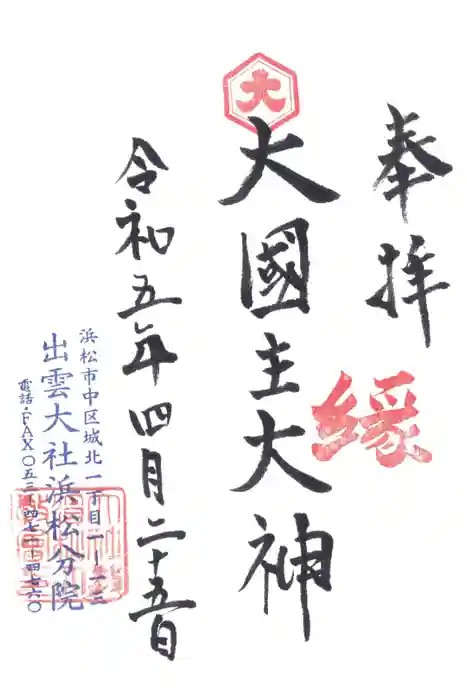 奉拝
縁
大
大國主大神
令和五年四月二十五日
浜松市中区城北一丁目一ー一三
出雲大社浜松分院
電話・FAX〇五三ー四七一ー四七六〇